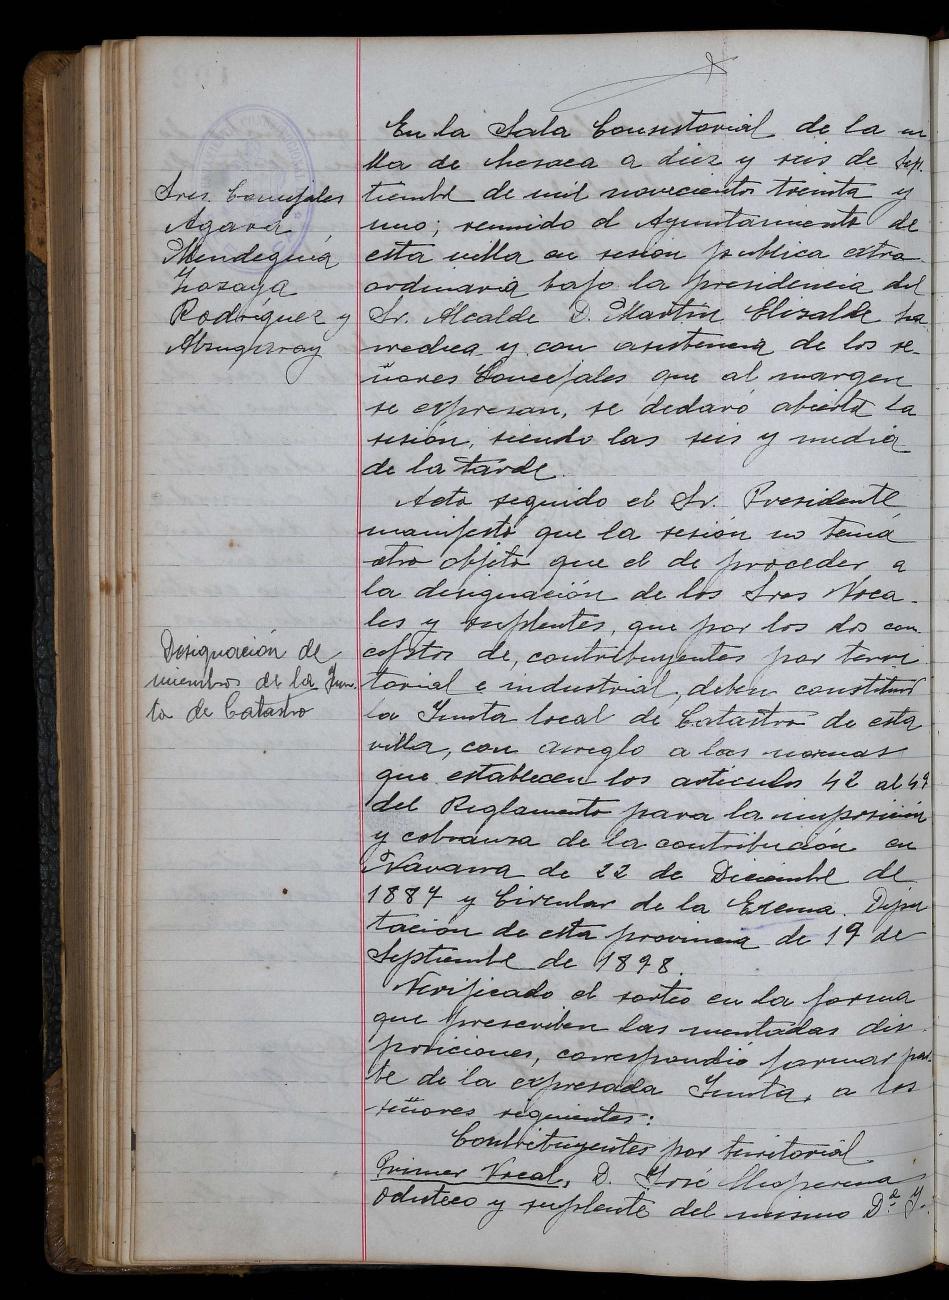 En la Sala Consistorial de la vi
lla de Lesaca a diez y seis de Sep.
tiembre de mil novecientos treinta y
uno; reunido el Ayuntamiento de
esta villa en sesion publica extra
ordinaria bajo la presidencia del
Sr. Alcalde D. Martin Elizalde
y con asistencia de los se-
ñores Concejales que al margen
se expresan, se declaró abierta la
sesión, siendo las seis y media
de la tarde.
Sres. Concejales
Agara
Mendeguia
Zozaya
Rodriguez y
Alzugaray
Acto seguido el Sr. Presidente
manifestó que la sesión no tenia
otro objeto que el de proceder a
la designación de los Sres Voca-
les y suplentes, que por los dos con-
ceptos de, contribuyentes por terri
torial e industrial, deben constituir
la Junta local de Catastro de esta
villa, con arreglo a las normas
que establecen los articulos 42 al 47
del Reglamento para la imposición
y cobranza de la contribución en
Navarra de 22 de Diciembre de
1887 y Circular de la Excma. Dipu
tación de esta provincia de 19 de
Septiembre de 1898.
Designación de
miembros de la Jun-
ta de Catastro
Verificado el sorteo en la forma
que prescriben las mentadas dis-
posiciones, correspondió formar par-
te de la expresada Junta, a los
señores siguientes:
Contribuyentes por territorial
Primer Vocal, D. José
y suplente del mismo Dª J.